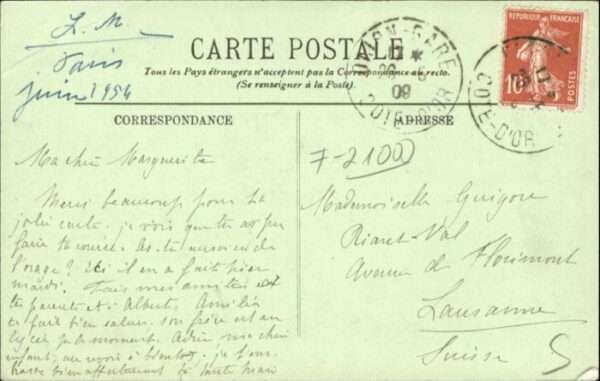 L. M.
Paris
juin 1954
CARTE POSTALE
Tous les Pays étrangers n'acceptent pas la Correspondance au recto.
(Se renseigner à la Poste).
DIJON-GARE
26
09
COTE-D'OR
RÉPUBLIQUE FRANÇAISE
10
COTE-D'OR
CORRESPONDANCE
ADRESSE
Ma chère Marguerite
Merci beaucoup pour ta
jolie carte. je vois que tu as pu
faire ta course. As-tu
l'orage? Ici il en a fait hier
mardi. mes amitiés
tes parents et Albert. Amélie
te fait bien saluer. son frère est au
lycée le moment. Adieu ma chère
enfant, au revoir à bientôt. je
bien affectueusement
7-2100
Mademoiselle Guigore
Riant-Val
Avenue de Florimont
Lausanne
Suisse